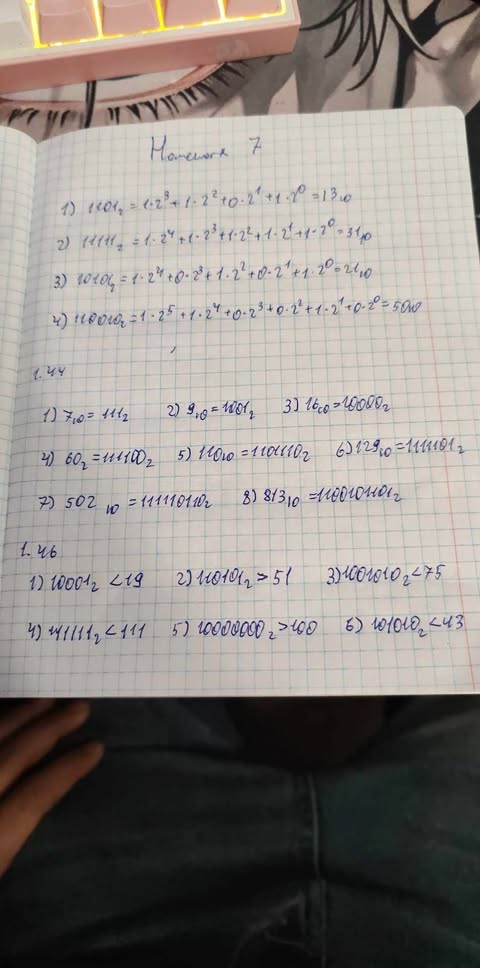 Homework 7
1) 1101₂ = 1·2³ + 1·2² + 0·2¹ + 1·2⁰ = 13₁₀
2) 11111₂ = 1·2⁴ + 1·2³ + 1·2² + 1·2¹ + 1·2⁰ = 31₁₀
3) 10101₂ = 1·2⁴ + 0·2³ + 1·2² + 0·2¹ + 1·2⁰ = 21₁₀
4) 110010₂ = 1·2⁵ + 1·2⁴ + 0·2³ + 0·2² + 1·2¹ + 0·2⁰ = 50₁₀
1.44
1) 7₁₀ = 111₂ 2) 9₁₀ = 1001₂ 3) 16₁₀ = 10000₂
4) 60₂ = 111100₂ 5) 110₁₀ = 1101110₂ 6) 129₁₀ = 1111101₂
7) 502₁₀ = 111110110₂ 8) 813₁₀ = 1100101101₂
1.46
1) 10001₂ < 19 2) 110101₂ > 51 3) 1001010₂ < 75
4) 11111₂ < 111 5) 10000000₂ > 100 6) 101010₂ < 43